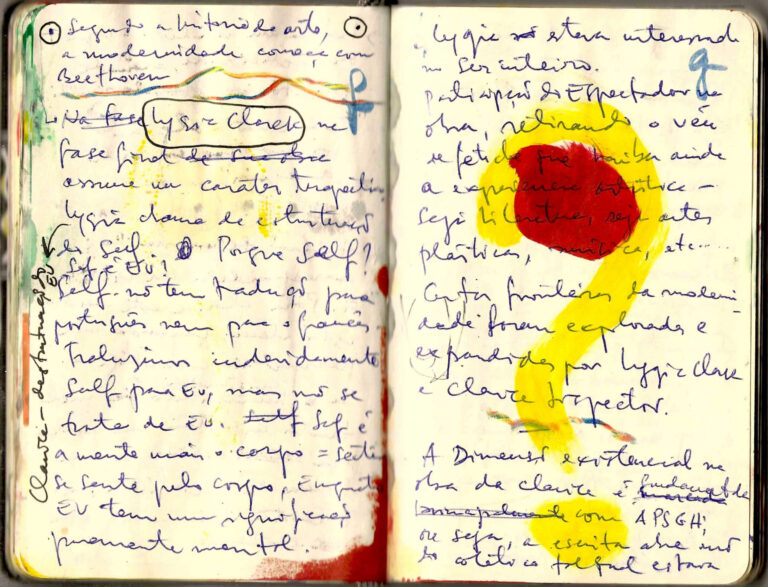 Segundo a historia da arte,
a modernidade começa com
Beethoven
f
Na fase Lygia Clarck na
fase final de sua obra
assume um caráter terapeutico
Lygia chama de estruturação
do Self. Porque Self?
Self é EU!
Self não tem tradução para
português nem para o francês
Traduzimos indevidamente
Self para EU, mas não se
trata de EU. Self Self é
a mente mais o corpo =
se sente pelo corpo, Enquanto
EU tem um significado
puramente mental.
Clarice - destruturação do EU
Lygia estava interessada
no ser inteiro.
g
participação do Espectador na
obra, retirando o véu
de fetiche que ainda
a experiencia artística -
seja literatura, seja artes
plásticas, música, etc...
fronteiras da moderni
dade foram exploradas e
expandidas por Lygia Clark
e Clarice Lispector.
A Dimensão existencial na
obra da Clarice é fundamental
com APSGH,
ou seja, a escrita
estava